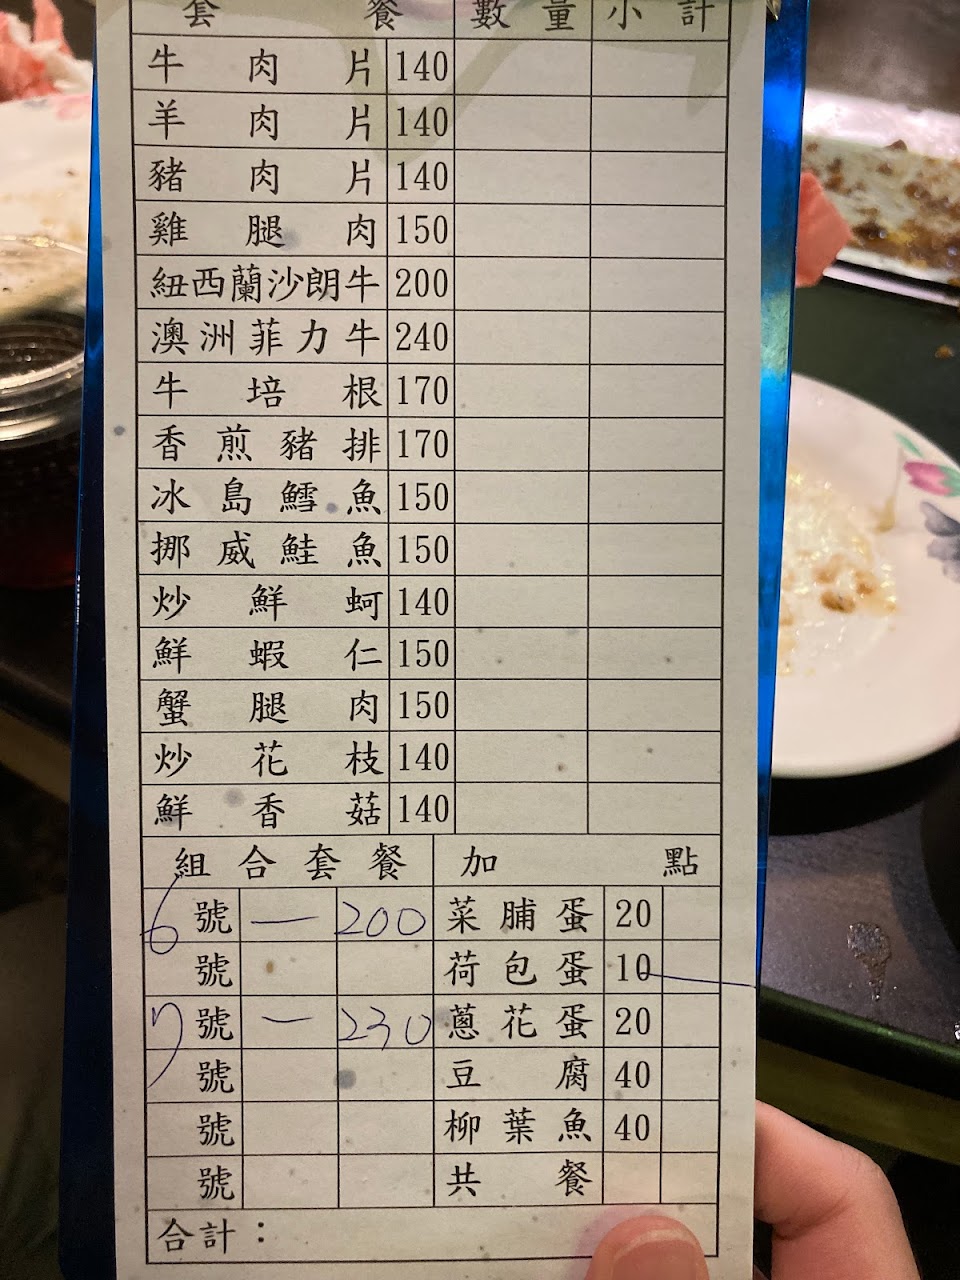 套餐 數量 小計
牛肉片 140
羊肉片 140
豬肉片 140
雞腿肉 150
紐西蘭沙朗牛 200
澳洲菲力牛 240
牛培根 170
香煎豬排 170
冰島鱈魚 150
挪威鮭魚 150
炒鮮蚵 140
鮮蝦仁 150
蟹腿肉 150
炒花枝 140
鮮香菇 140
組合套餐 加點
6號 一 200 菜脯蛋 20
號 荷包蛋 10
7號 一 230 蔥花蛋 20
號 豆腐 40
號 柳葉魚 40
號 共餐
合計：